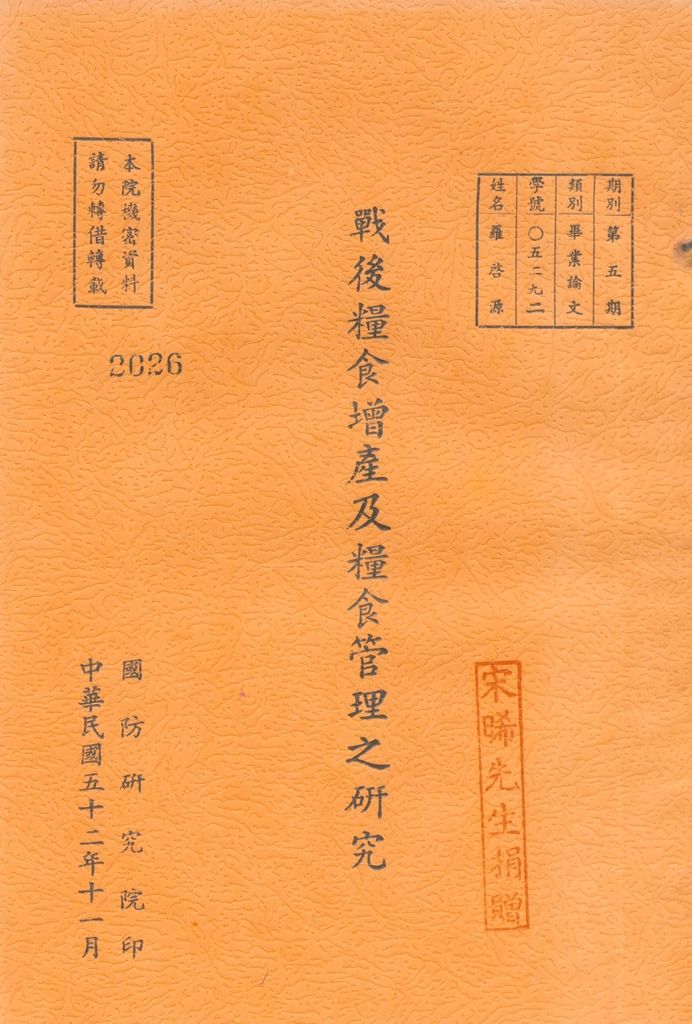 期別 第五期
類別 畢業論文
學號 〇五二九二
姓名 羅啓源
戰後糧食增產及糧食管理之研究
宋晞先生捐贈
本院機密資料
請勿轉借轉載
2026
國防研究院印
中華民國五十二年十一月